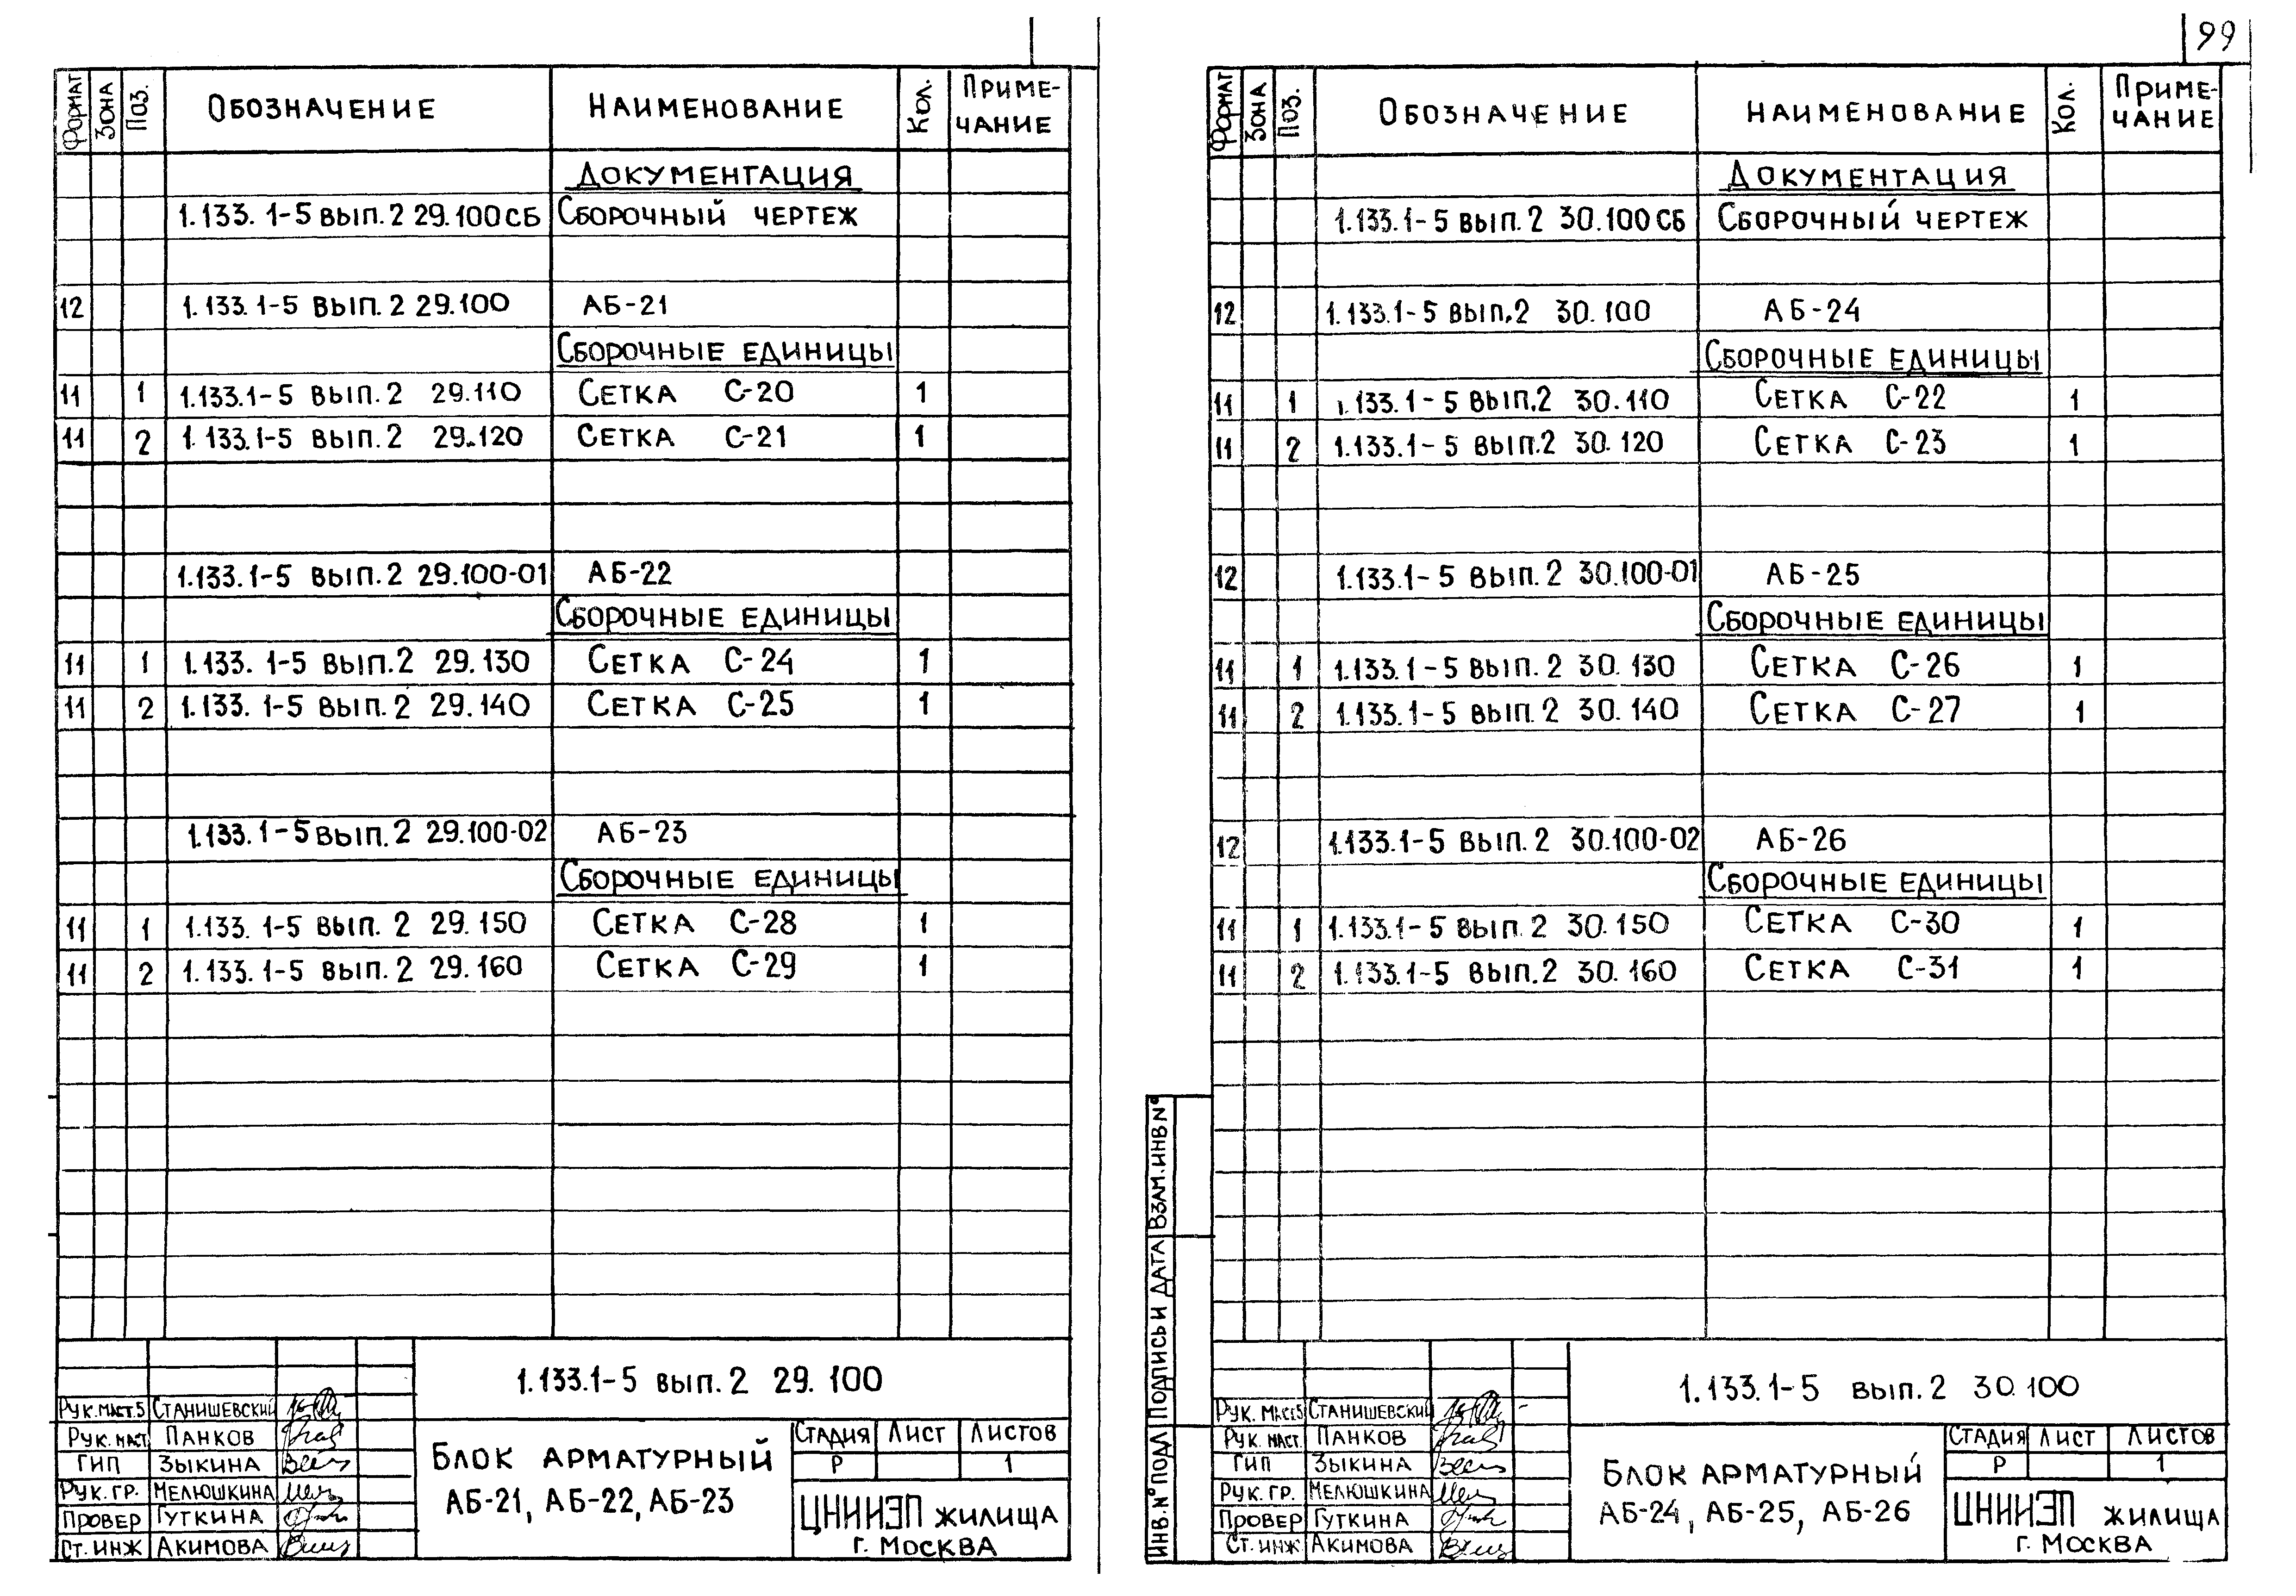 99
Формат Зона Поз. Обозначение Наименование Кол. Приме-
чание
Документация
1.133.1-5 вып.2 29.100СБ Сборочный чертеж
12 1.133.1-5 вып.2 29.100 АБ-21
Сборочные единицы
11 1 1.133.1-5 вып.2 29.110 Сетка С-20 1
11 2 1.133.1-5 вып.2 29.120 Сетка С-21 1
1.133.1-5 вып.2 29.100-01 АБ-22
Сборочные единицы
11 1 1.133.1-5 вып.2 29.130 Сетка С-24 1
11 2 1.133.1-5 вып.2 29.140 Сетка С-25 1
1.133.1-5 вып.2 29.100-02 АБ-23
Сборочные единицы
11 1 1.133.1-5 вып.2 29.150 Сетка С-28 1
11 2 1.133.1-5 вып.2 29.160 Сетка С-29 1
1.133.1-5 вып.2 29.100
Рук.маст.5 Станишевский
Рук.маст Панков
ГИП Зыкина
Рук.гр. Мелюшкина
Провер Гуткина
Ст.инж Акимова
Блок арматурный
АБ-21, АБ-22, АБ-23
Стадия Лист Листов
Р 1
ЦНИИЭП жилища
г. Москва
Формат Зона Поз. Обозначение Наименование Кол. Приме-
чание
Документация
1.133.1-5 вып.2 30.100СБ Сборочный чертеж
12 1.133.1-5 вып.2 30.100 АБ-24
Сборочные единицы
11 1 1.133.1-5 вып.2 30.110 Сетка С-22 1
11 2 1.133.1-5 вып.2 30.120 Сетка С-23 1
12 1.133.1-5 вып.2 30.100-01 АБ-25
Сборочные единицы
11 1 1.133.1-5 вып.2 30.130 Сетка С-26 1
11 2 1.133.1-5 вып.2 30.140 Сетка С-27 1
12 1.133.1-5 вып.2 30.100-02 АБ-26
Сборочные единицы
11 1 1.133.1-5 вып.2 30.150 Сетка С-30 1
11 2 1.133.1-5 вып.2 30.160 Сетка С-31 1
Инв.№ подл Подпись и дата Взам.инв №
1.133.1-5 вып.2 30.100
Рук. мас5 Станишевский
Рук. маст. Панков
ГИП Зыкина
Рук.гр. Мелюшкина
Провер Гуткина
Ст.инж Акимова
Блок арматурный
АБ-24, АБ-25, АБ-26
Стадия Лист Листов
Р 1
ЦНИИЭП жилища
г. Москва